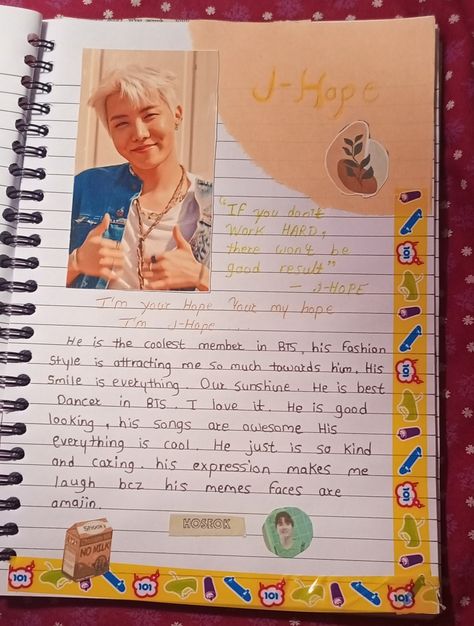 J-Hope
"If you don't
WORK HARD,
there won't be
good result"
— J-HOPE
I'm your Hope Your my hope
I'm J-Hope ....
He is the coolest member in BTS, his fashion
Style is attracting me so much towards him. His
Smile is everything. Our sunshine. He is best
Dancer in BTS. I love it. He is good
looking, his songs are awesome His
everything is cool. He just is so kind
and caring. his expression makes me
laugh bcz his memes faces are
amajin.
HOSEOK
NO MILK
101
101
101
101
101
101
101
101